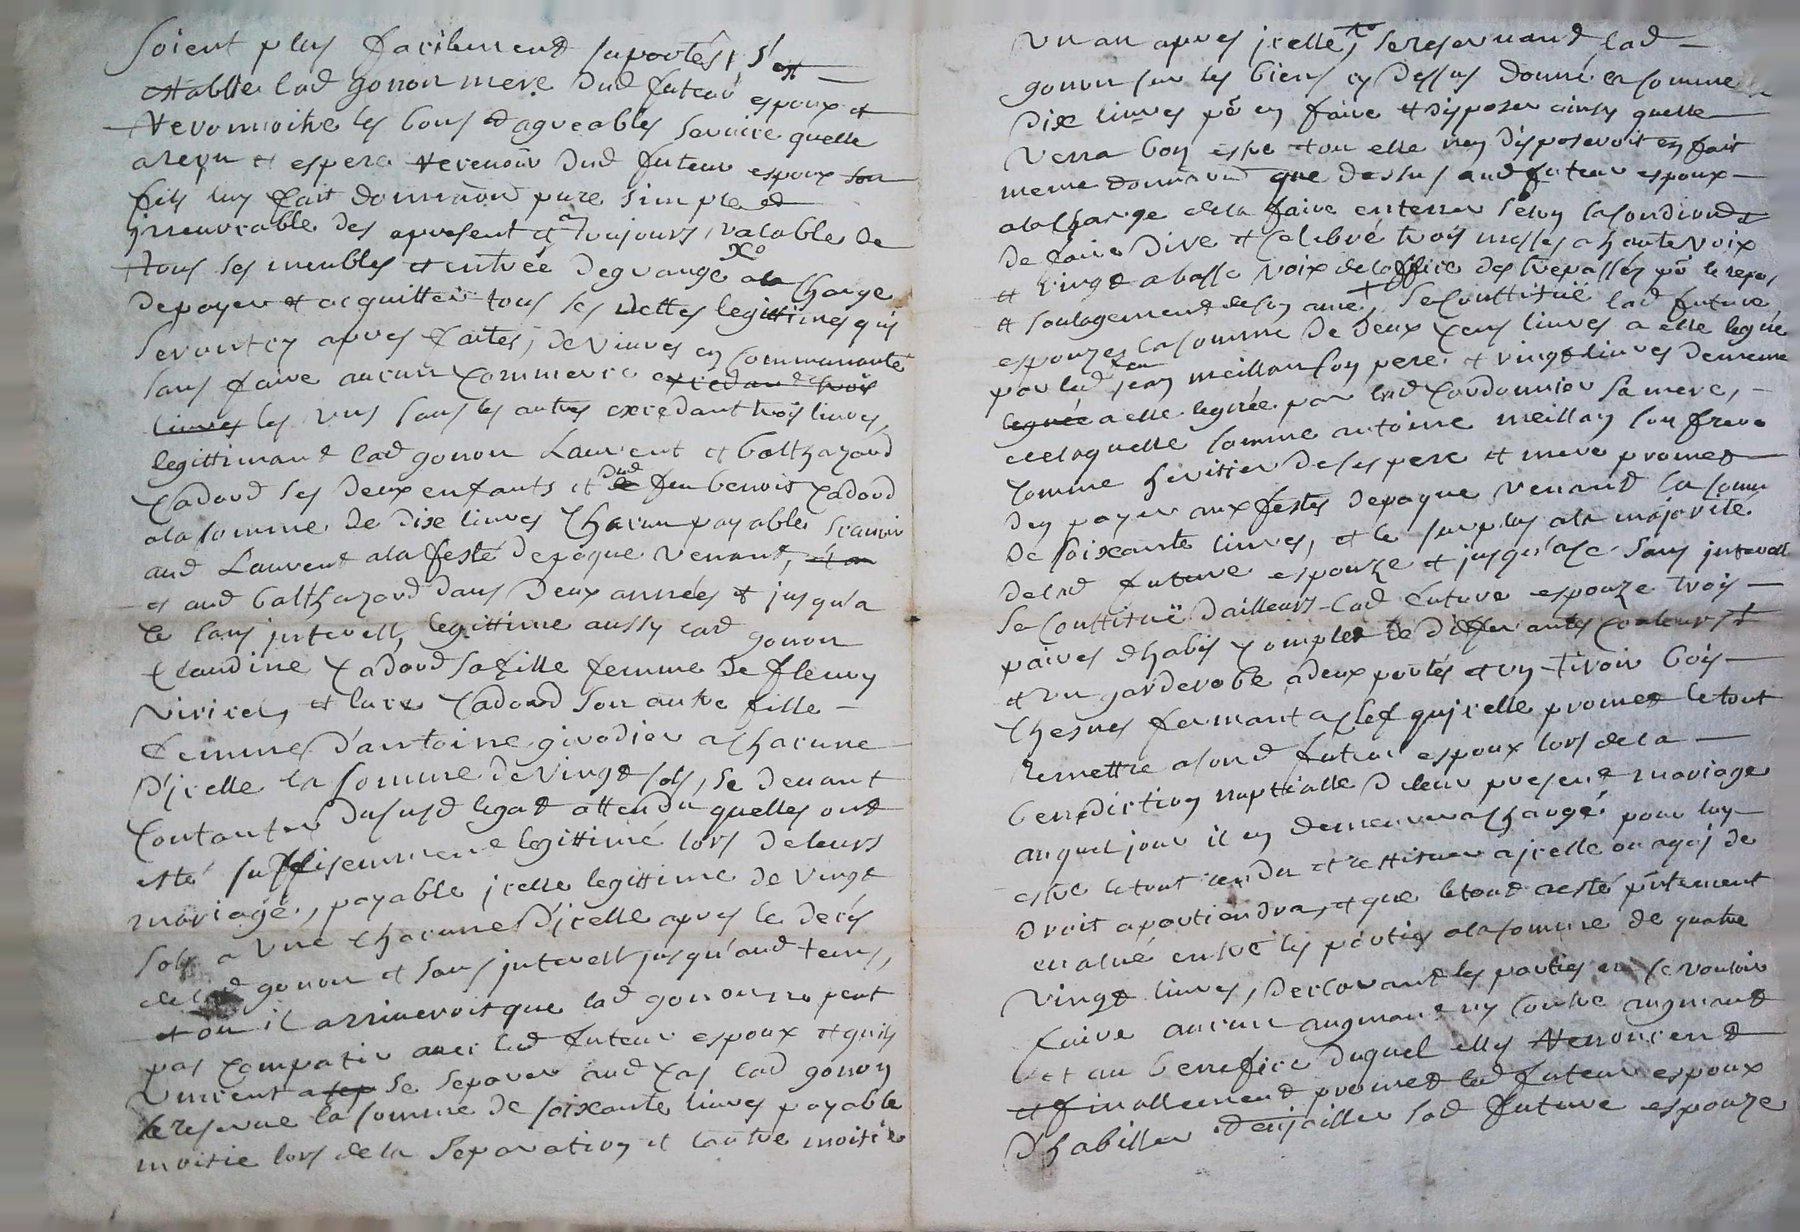 soient plus facilement suportés, s'est
establie lad gonon mere dud futeur espoux et
reconnoitre les bons et agreables service quelle
a reçu et espere recevoir dud futeur espoux son
fils luy fait donnaon pure simple et
irreuocable des apresent et a toujours valable de
tous ses meubles et entrée de grange Xo a la charge
de payer et acquitter tous ses dettes legittimes qui
seront cy apres faites, de viures en communauté
sans faire aucun commerce excedant trois
liures les uns sans les autres excedant trois liures,
legittimant lad gonon Laurent et balthazard
Cadord ses deux enfants et de dud feu benoit Cadord
a la somme de dixe liures chacun payables scauoir
aud Laurent a la feste de paque venant, et a
et aud balthazard dans deux années et jusqu'a
ce sans interest, legittime aussy lad gonon
Claudine Cadord sa fille femme de fleury
viricel, et luce Cadord son autre fille
femme d'antoine girodier a chacune
d'icelle la somme de vingt sols, se deuant
contanter dususd legat attendu quelles ont
esté suffisemment legittimé lors de leurs
mariage, payable icelle legittime de vingt
sols a une chacune d'icelle apres le decés
de lad gonon et sans interest jusqu'aud tems,
et ou il arriueroit que lad gonon ne peut
pas compatir auec led futeur espoux et quils
vincent a sep se separer aud cas lad gonon
se reserue la somme de soixante liures payable
moitie lors de la separation et l'autre moitié
un an apres icelle, to se reseruant lad
gonon sur les biens cy dessus donné la somme
dixe liures po en faire et disposer ainsy quelle
verra bon estre et ou elle n'en disposeroit en fait
meme donnaon que dessus aud futeur espoux
a la charge de la faire enterrer selon sa condition et
de faire dire et celebré trois messes a haute voix
et vingt a basse voix de l'office des trepassés po le repos
et soulagement de son ame, + se constitue lad future
espouze la somme de deux cens liures a elle leguée
par led feu jean meillan son pere, et vingt liures de meme
leguée a elle leguée par lad Cordonnier sa mere,
de laquelle somme antoine meillan son frere
comme heritier de ses pere et mere promet
d'en payer aux festes de paque venant la somme
de soixante liures, et le surplus a la majorité
de lad future espouze et jusqu'a ce sans interest
se constitue d'ailleurs lad future espouze trois
paires d'habis complet de differantes couleurs et
et un garderobe a deux portes et un tiroir bois
chesne fermant a clef qu'icelle promet le tout
remettre a sond futeur espoux lors de la
benediction nuptialle de leur present mariage
auquel jour il en demeurera chargé pour luy
estre le tout rendu et restituer a icelle ou ayés de
droit apartiendra, et que le tout a esté pntement
eualué entre les parties a la somme de quatre
vingt liures, declarant les parties ne se vouloir
faire aucun augmant ny contre augmant
et au benefice duquel elles renoncent
et finallement promet led futeur espoux
d'habiller et enjoailler lad future espouze